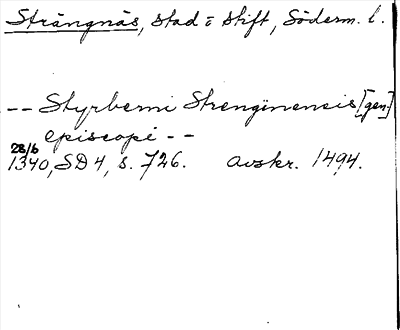 Strängnäs, stad o stift, Söderm. l.
-- Styrberni Strenginensis [gen.]
episcopi --
28/6
1340, SD 4, s. 726. avskr. 1494.